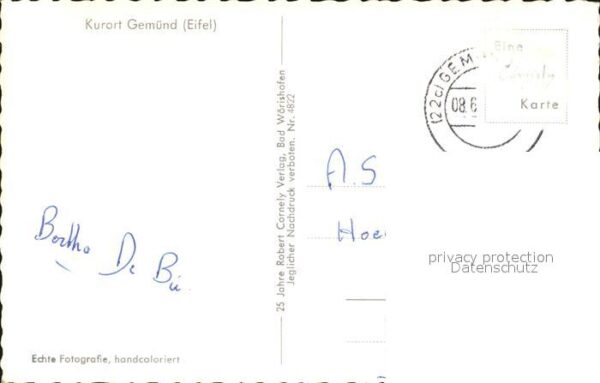 Kurort Gemünd (Eifel)
Eine
Cornely
Karte
(22c) GEM
08.6
25 Jahre Robert Cornely Verlag, Bad Wörishofen
Jeglicher Nachdruck verboten. Nr. 4822
A. S
Hoe
privacy protection
Datenschutz
Bertha De Bü
Echte Fotografie, handcoloriert